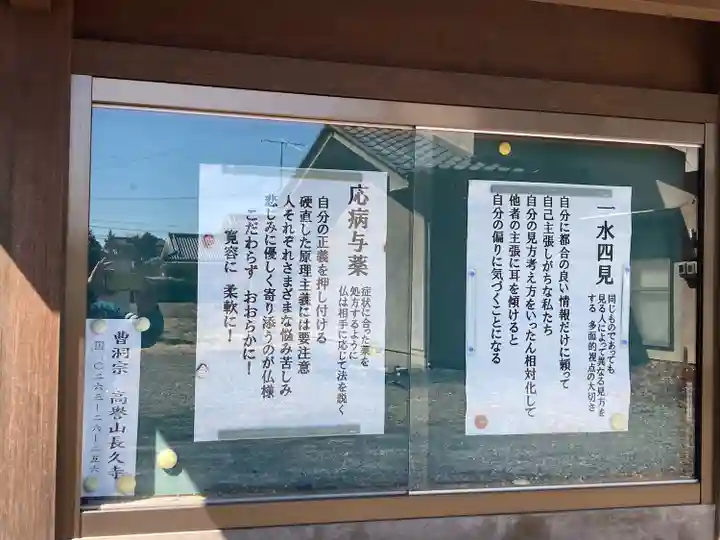 一水四見
同じものであっても
見る人によって異なる見方を
する 多面的視点の大切さ
自分に都合の良い情報だけに頼って
自己主張しがちな私たち
自分の見方考え方をいったん相対化して
他者の主張に耳を傾けると
自分の偏りに気づくことになる
応病与薬
症状に合った薬を
処方するように
仏は相手に応じて法を説く
自分の正義を押し付ける
硬直した原理主義には要注意
人それぞれさまざまな悩み苦しみ
悲しみに優しく寄り添うのが仏様
こだわらず おおらかに!
寛容に 柔軟に!
曹洞宗 高誉山長久寺
〇二六三-二六-二五六